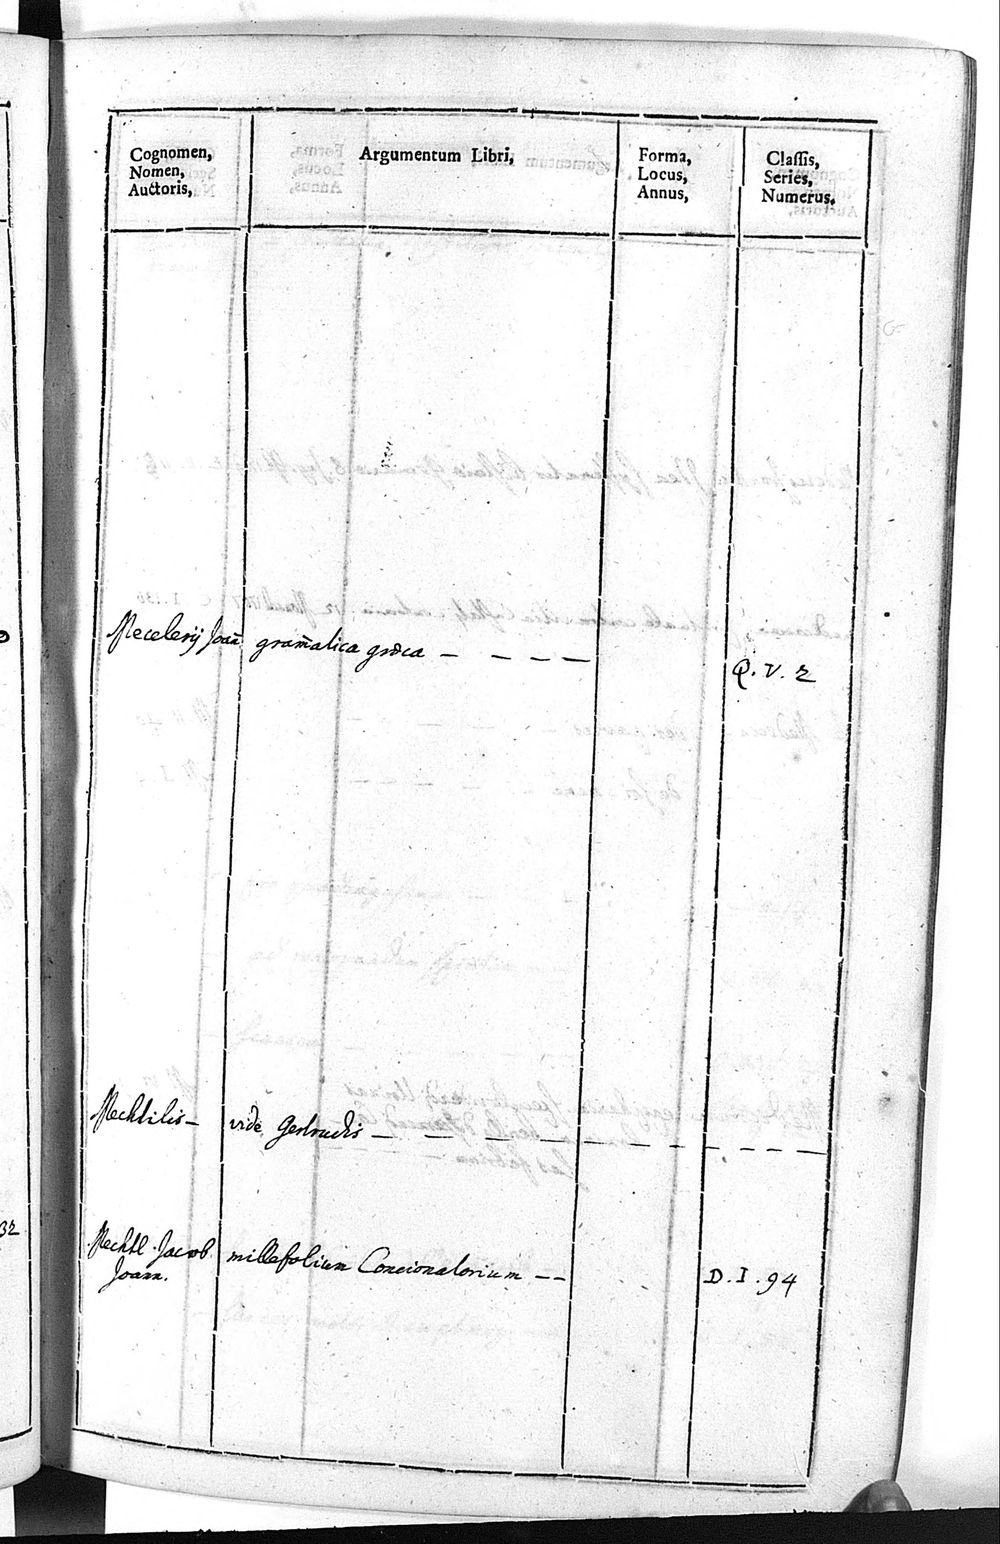 Cognomen,
Nomen,
Auctoris,
Argumentum Libri,
Forma,
Locus,
Annus,
Classis,
Series,
Numerus.
Mecelerij Joan̄ gram̄atica græca — — — —
Q. V. 2
Mechtilis — vide Gertrudis — — — — — — — — —
Mechtl Jacob millefolium Concionatorium — —
Joann.
D. I. 94
32